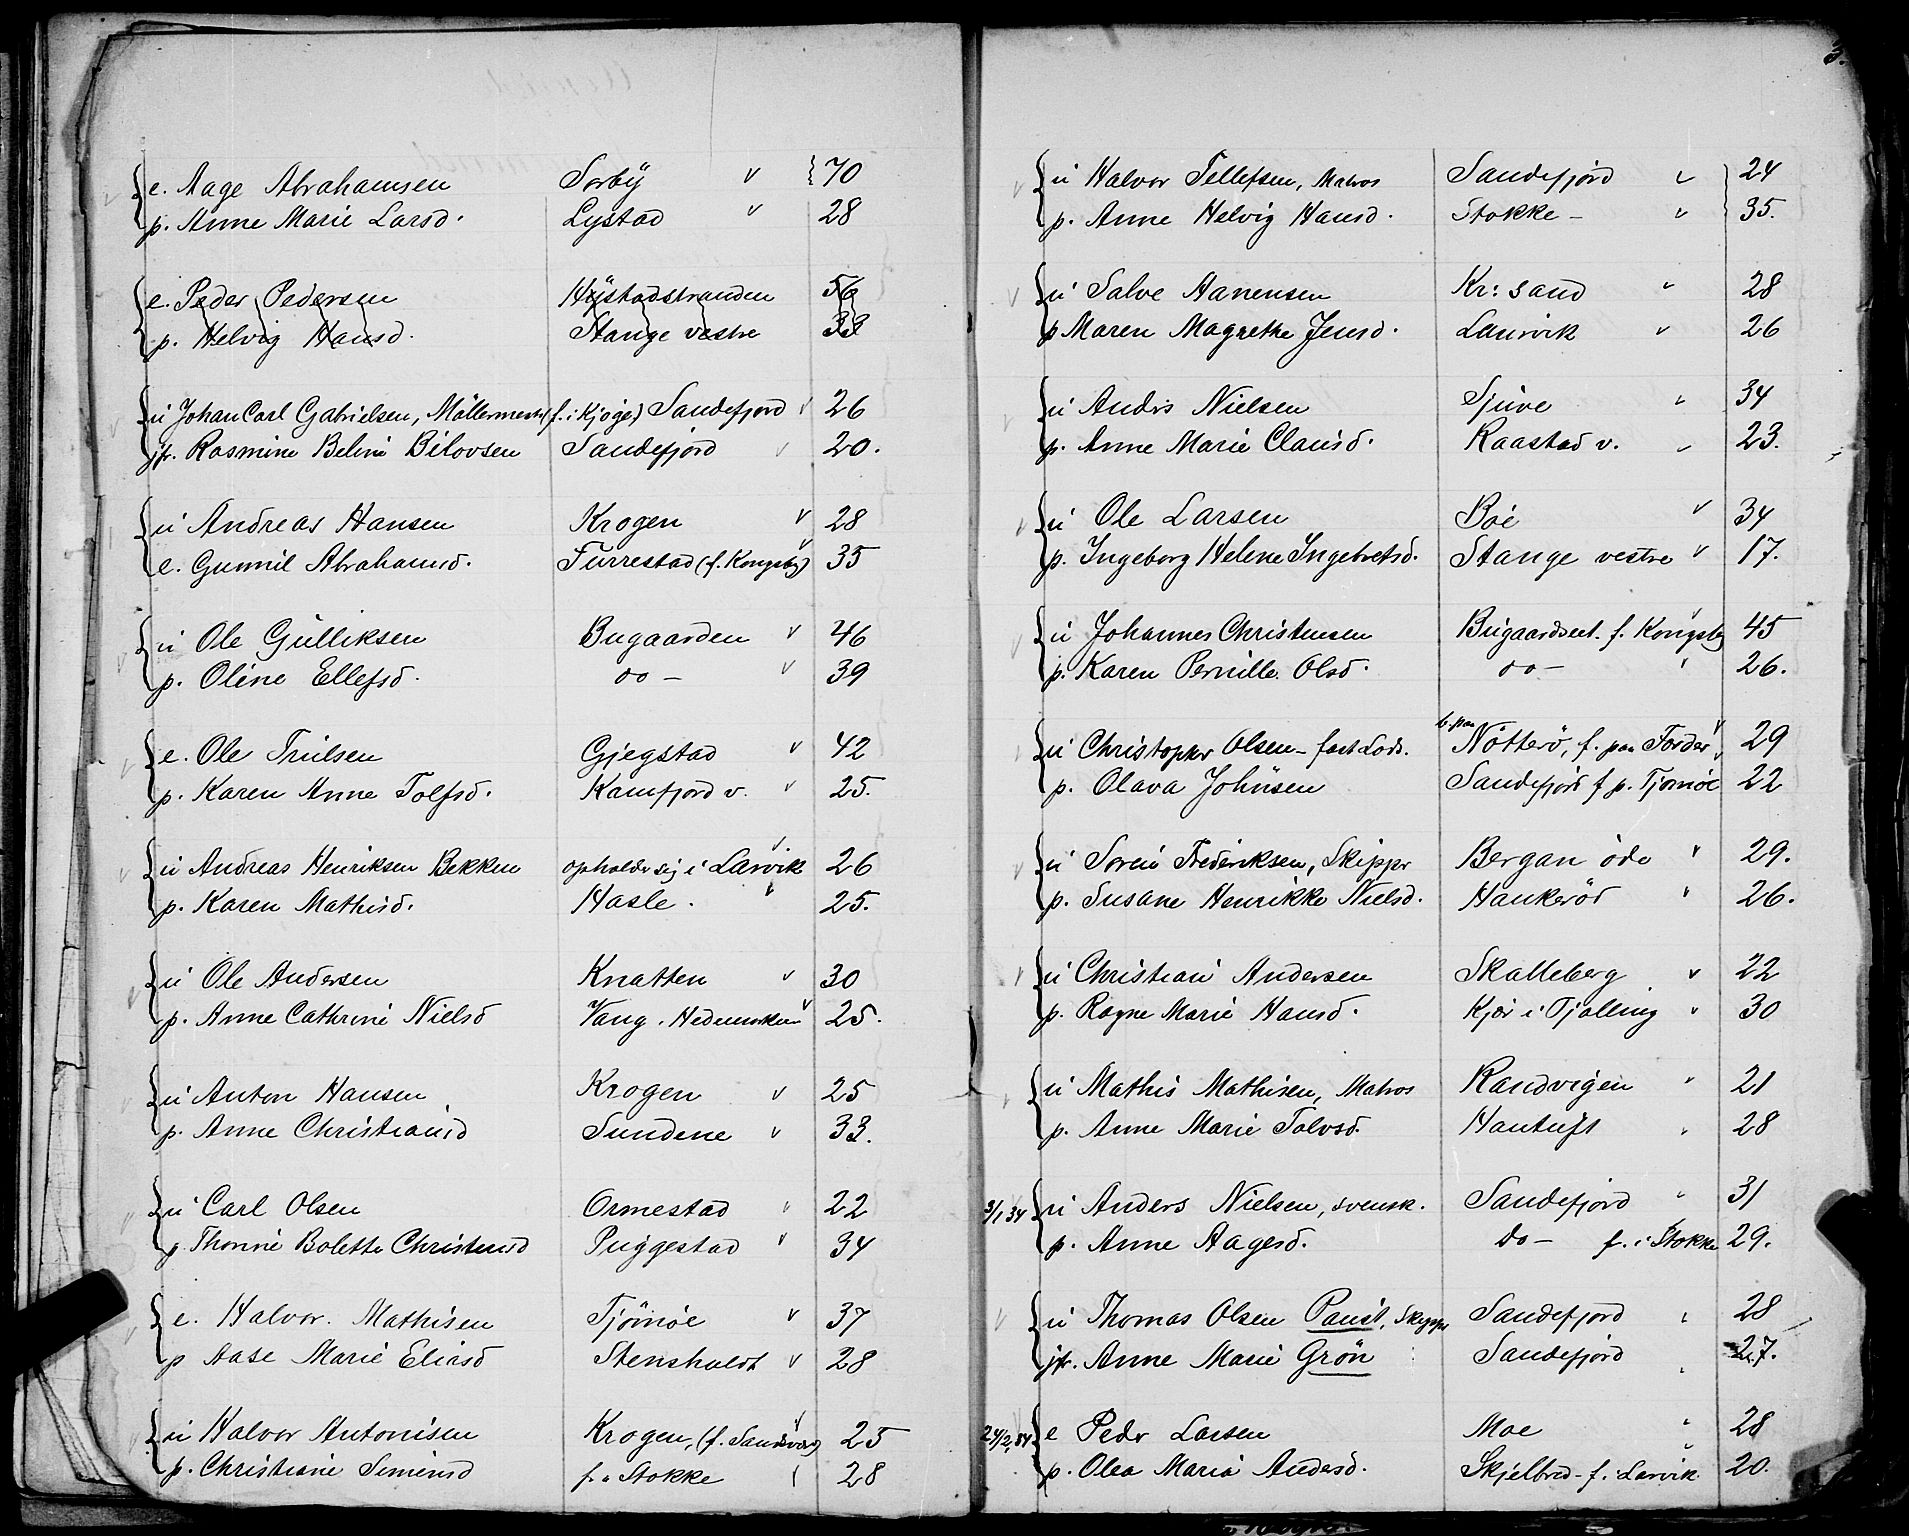 e. Aage Abrahamsen Sorbÿ v 70
p. Anne Marie Larsd. Lystad v 28
e. Peder Pedersen Hystadstranden 56
p. Helvig Hansd. Stange vestre 33
ú Johan Carl Gabrielsen, Möllermest. (f. i Kjøge) Sandefjord v 26
jfr. Rasmine Beline Bilovsen Sandefjord v 20.
ú Andreas Hansen Krogen v 28
e. Gunnil Abrahamsd. Furrestad (f. Kongsby) v 35
ú Ole Gulliksen Bugaarden v 46
p. Oline Ellefsd. do - v 39
e. Ole Trulsen Gjegstad v 42
p. Karen Anne Tolfsd. Kamfjord v. v 25.
ú Andreas Henriksen Bekken opholder sig i Larvik v 26
p. Karen Mathisd. Hasle. v 25.
ú Ole Andersen Knatten v 30
p. Anne Cathrine Nielsd Vang. Hedemarken v 25.
ú Anton Hansen Krogen v 25
p. Anne Christiansd Sundene v 33.
ú Carl Olsen Ormestad v 22
p. Thorine Bolette Christensd Puggestad v 34
e. Halvor Mathisen Tjömöe v 37
p Aase Marie Eliasd Stensholdt v 28
ú Halvor Antonisen Krogen, (f. Sandsvær) v 25
p. Christiane Simensd f. i Stokke 28
3.
ú Halvor Tellefsen, Matros Sandefjord v 24
p. Anne Helvig Hansd. Stokke - v 35.
ú Salve Hanensen Kr: sand v 28
p Maren Magrethe Jensd. Laurvik v 26
ú Andrs Nielsen Sjuve v 34
p. Anne Marie Clausd. Raastad v. v 23.
ú Ole Larsen Böe v 34
p. Ingeborg Helene Ingebretsd. Stange vestre v 17.
ú Johannes Christensen Bugaardseet. f. Kongsby v 45
p. Karen Pernille Olsd. do - 26.
b. paa
ú Christopher Olsen - fast Lods. Nötterö, f. paa Forder v 29
p. Olava Johnsen Sandefjord f p. Tjömöe 22
ú Soren Frederiksen, Skippr Bergan öde v 29.
p. Susane Henrikke Nielsd. Haukeröd v 26.
ú Christian Andersen Skalleberg v 22
p. Ragne Marie Hansd. Kjær i Tjølling v 30
ú Mathis Mathisen, Matros Randvigen v 21
p. Anne Marie Tolvsd. Hantuft 28
3/1 34 ú Anders Nielsen, svensk. Sandefjord 31
p. Anne Aagesd. do - f. i Stokke 29.
ú Thomas Olsen Paust, Skippr Sandefjord 28
jfr. Anne Marie Grön Sandefjord 27.
24/2, 34 e Pedr Larsen Moe 28
p. Olea Maria Andersd. Skjelbred - f. i Larvik 20.